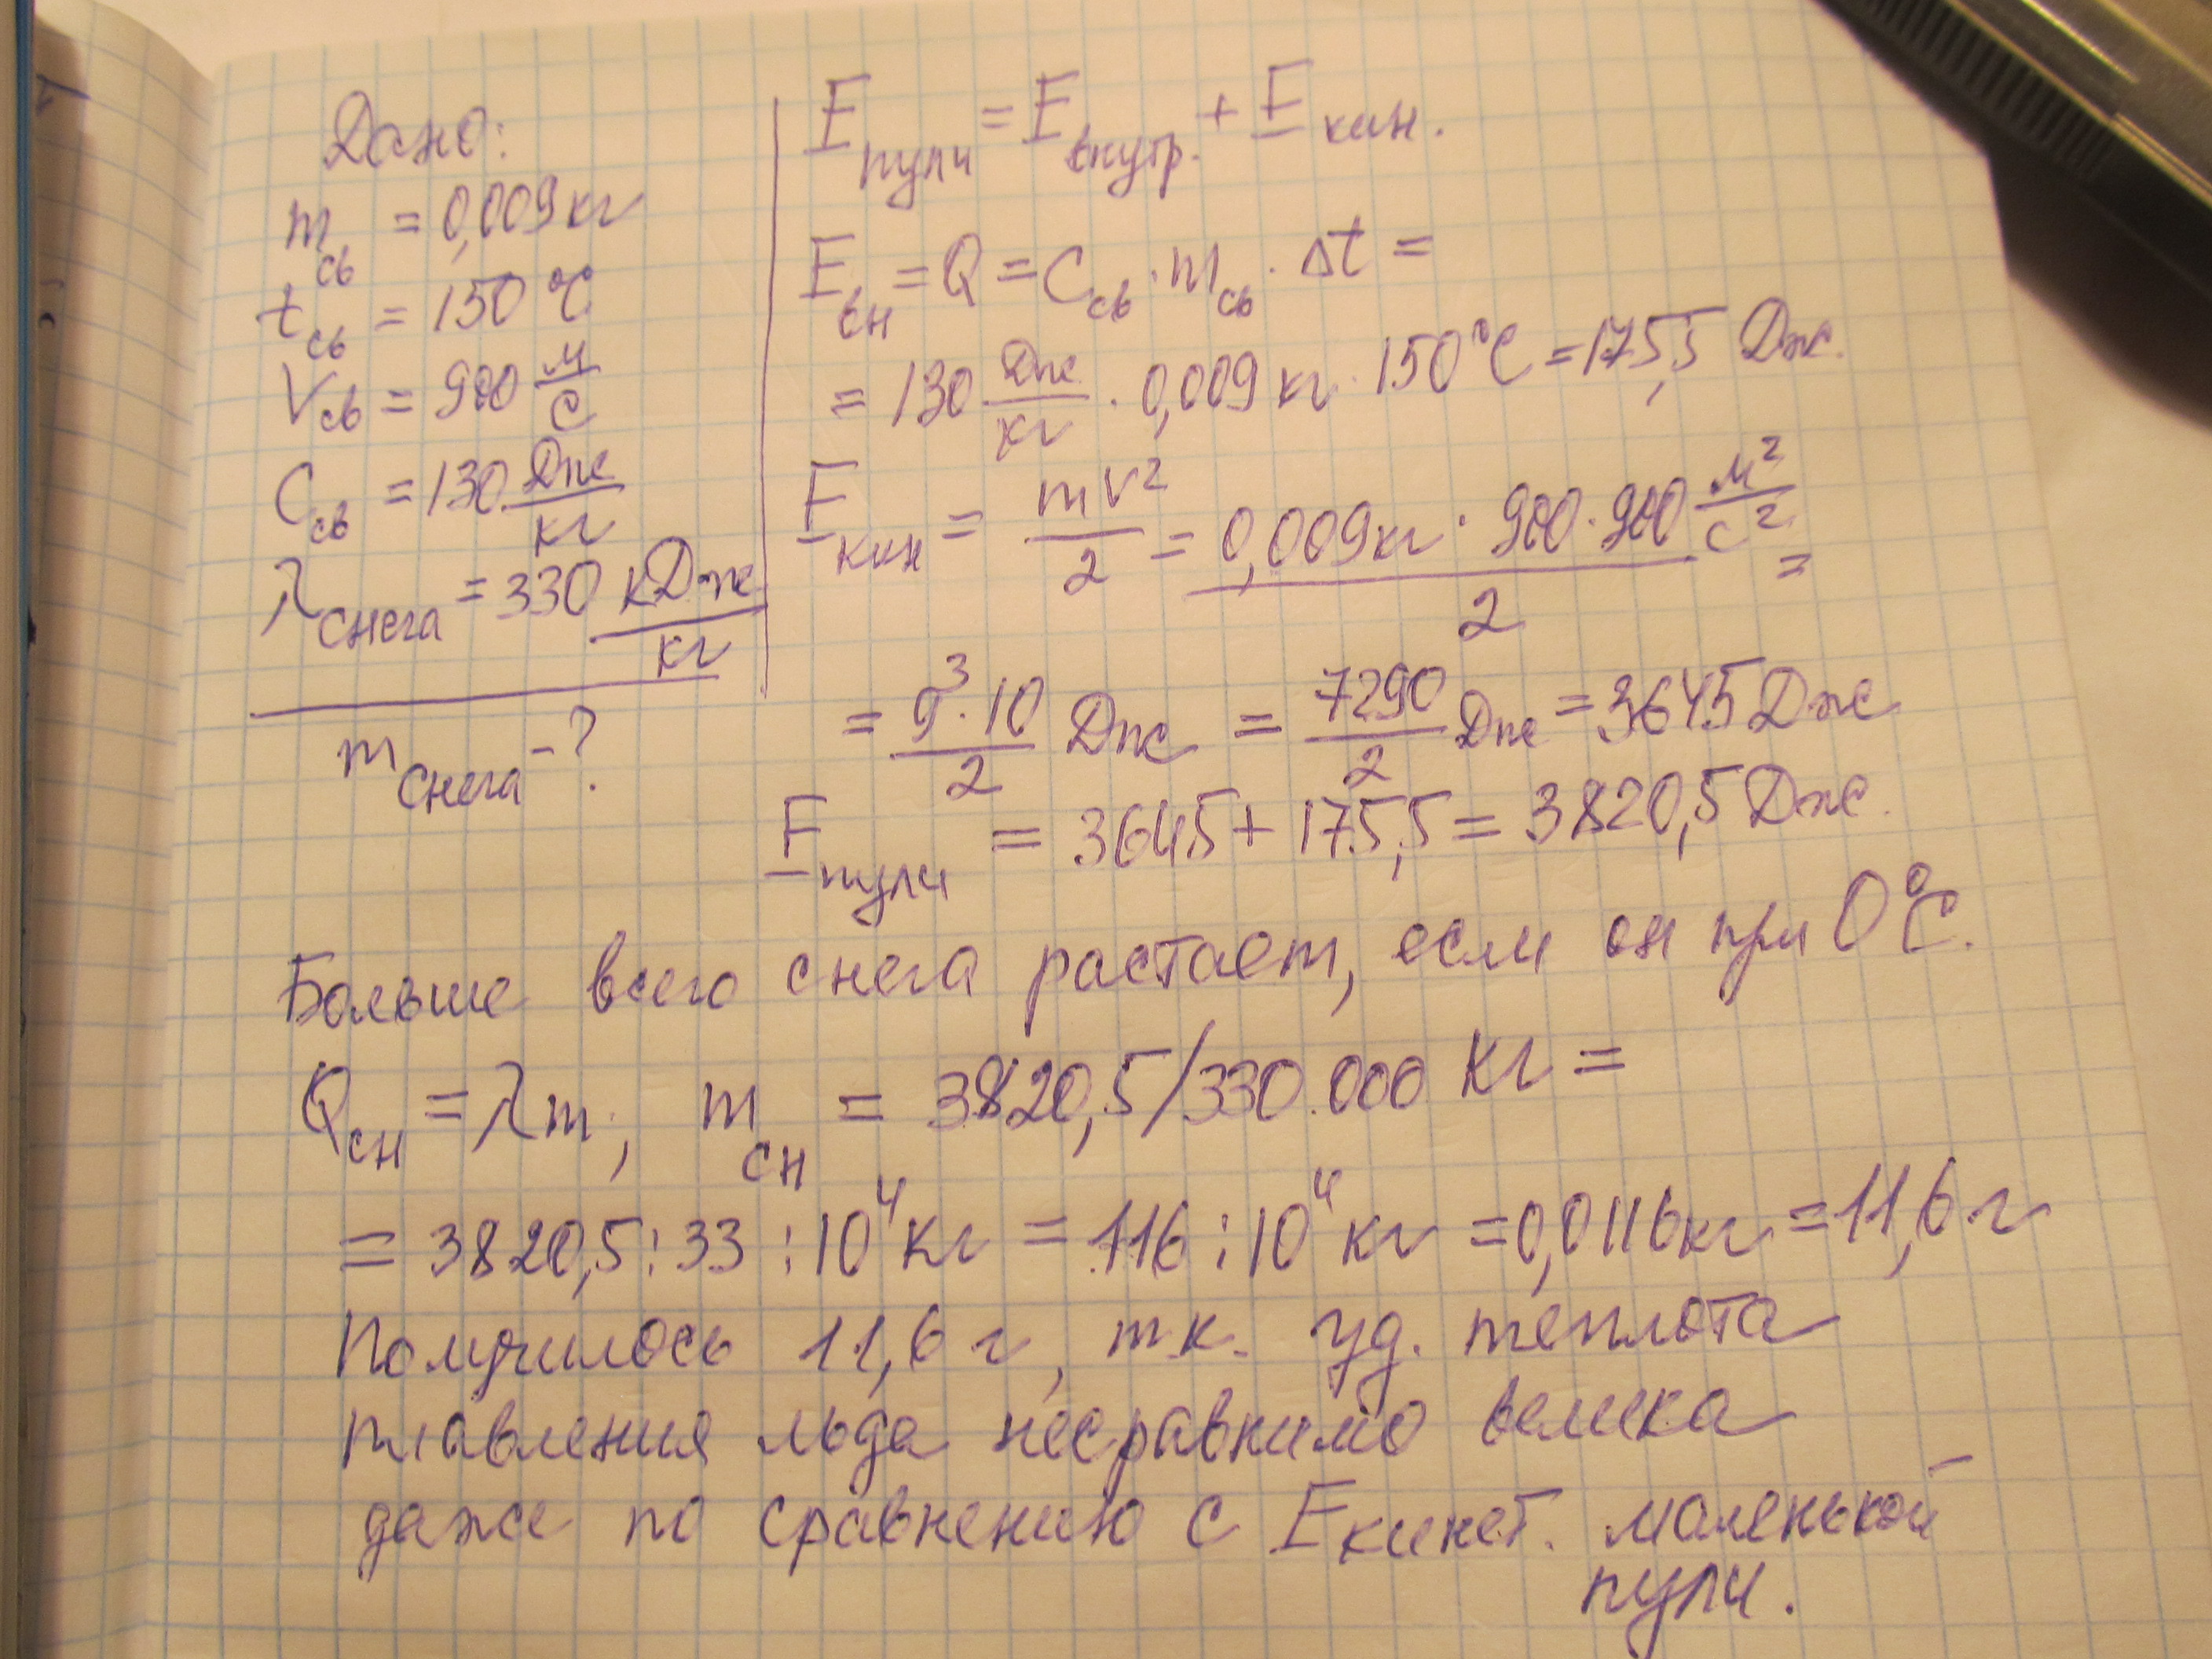 Дано:
m св = 0,009 кг
t св = 150 °C
V св = 900 м/с
C св = 130 Дж/кг
λ снега = 330 кДж/кг
m снега - ?
E пули = E внутр. + E кин.
E вн = Q = C св · m св · Δt =
= 130 Дж/кг · 0,009 кг · 150 °C = 175,5 Дж.
E кин = mv²/2 = 0,009 кг · 900 · 900 м²/с² / 2 =
= 9³ · 10 / 2 Дж = 7290/2 Дж = 3645 Дж
E пули = 3645 + 175,5 = 3820,5 Дж.
Больше всего снега растает, если он при 0 °C.
Q сн = λm; m сн = 3820,5/330.000 кг =
= 3820,5 : 33 : 10⁴ кг = 116 : 10⁴ кг = 0,0116 кг = 11,6 г
Получилось 11,6 г, т.к. уд. теплота
плавления льда несравнимо велика
даже по сравнению с E кинет. маленькой
пули.